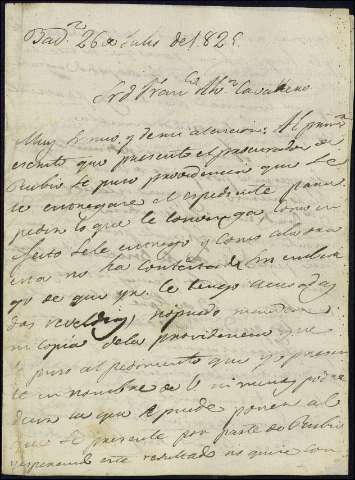 Bad.z 26 de Julio de 1825
Sr. d. Fran.co Ant.o Cavallero
Muy Sr. mio y de mi atencion: Al primer
escrito que presentó el procurador de
Rubio se puso providencia que se
le entregase el espediente para
pedir lo que le convenga, como en
efecto se le entregó y como ahora
esta no ha contestado, sin embar
go de que ya le tengo acusadas
dos reveldias,
ni copia de la providencia que
se puso al pedimento que yo presen
te en nombre de V. ni menos poder
decir la que se puede poner al
que se presente por parte de Rubio
y esperando este resultado no quise con